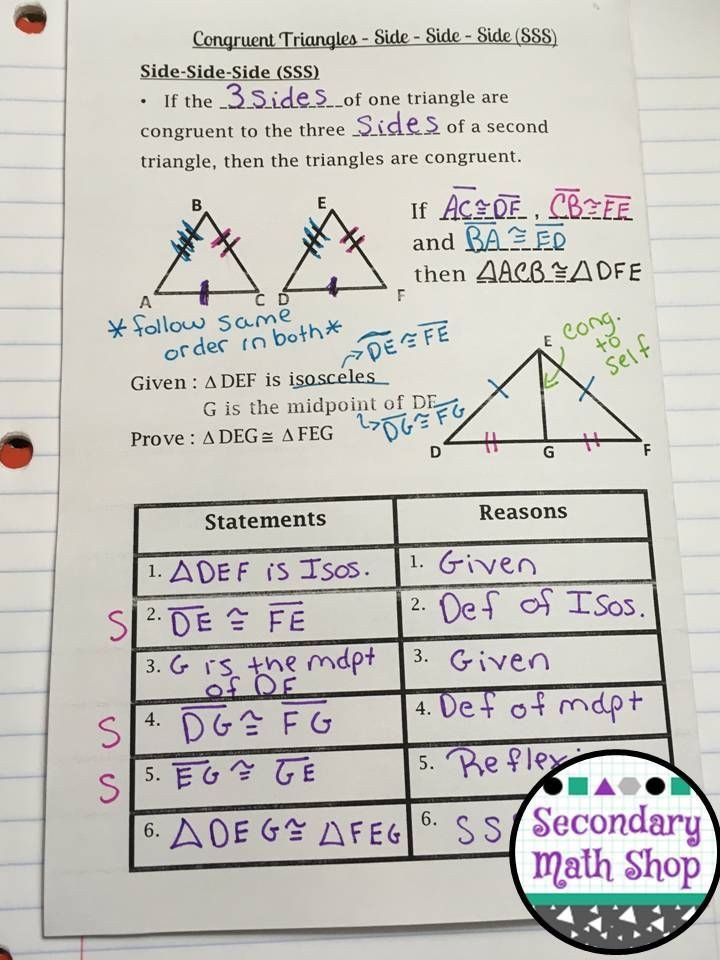 Congruent Triangles - Side - Side - Side (SSS)
Side-Side-Side (SSS)
• If the 3 Sides of one triangle are
congruent to the three Sides of a second
triangle, then the triangles are congruent.
B
E
A
C
D
F
If AC≅DF , CB≅FE
and BA≅ED
then ΔACB≅ΔDFE
*follow same
order in both*
DE≅FE
Given : Δ DEF is isosceles
G is the midpoint of DF
DG≅FG
Prove : Δ DEG≅ ΔFEG
E
cong.
to
self
D
G
F
Statements
Reasons
1. ΔDEF is Isos.
1. Given
S
2. DE ≅ FE
2. Def of Isos.
3. G is the mdpt
of DF
3. Given
S
4. DG≅ FG
4. Def of mdpt
S
5. EG≅ GE
5.
6. ΔDEG≅ ΔFEG
6.
Secondary
Math Shop